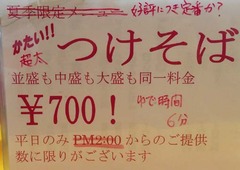 夏季限定メニュー 好評につき定番か?
かたい!!
超太 つけそば
並盛も中盛も大盛も同一料金
¥700! ゆで時間
6分
平日のみ PM2:00 からのご提供
数に限りがございます